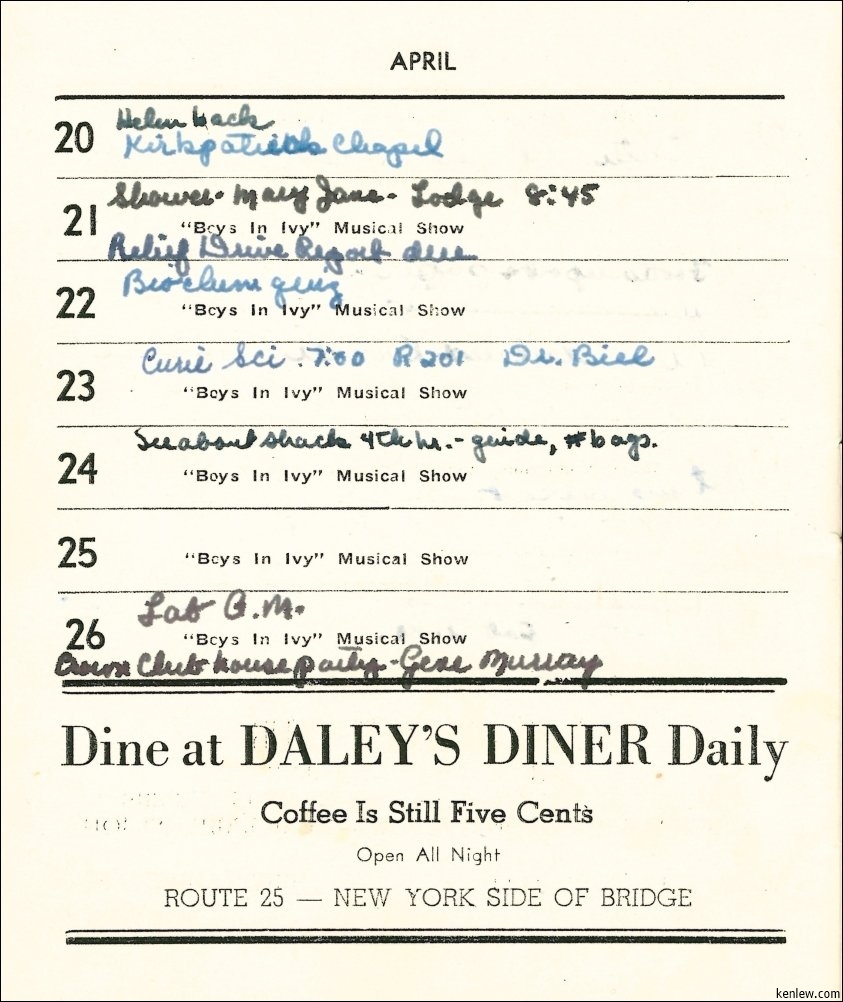 APRIL
20 Helen back
Kirkpatrick Chapel
Shower - Mary Jane - Lodge 8:45
21 "Boys In Ivy" Musical Show
Relief Drive Report due
Biochem quiz
22 "Boys In Ivy" Musical Show
Curie Sci. 7:00 R 201 Dr. Biel
23 "Boys In Ivy" Musical Show
See about shack 4th hr. - guide, # bags.
24 "Boys In Ivy" Musical Show
25 "Boys In Ivy" Musical Show
Lab A.M.
26 "Boys In Ivy" Musical Show
Crown Club house party - Gene Murray
Dine at DALEY'S DINER Daily
Coffee Is Still Five Cents
Open All Night
ROUTE 25 — NEW YORK SIDE OF BRIDGE
kenlew.com